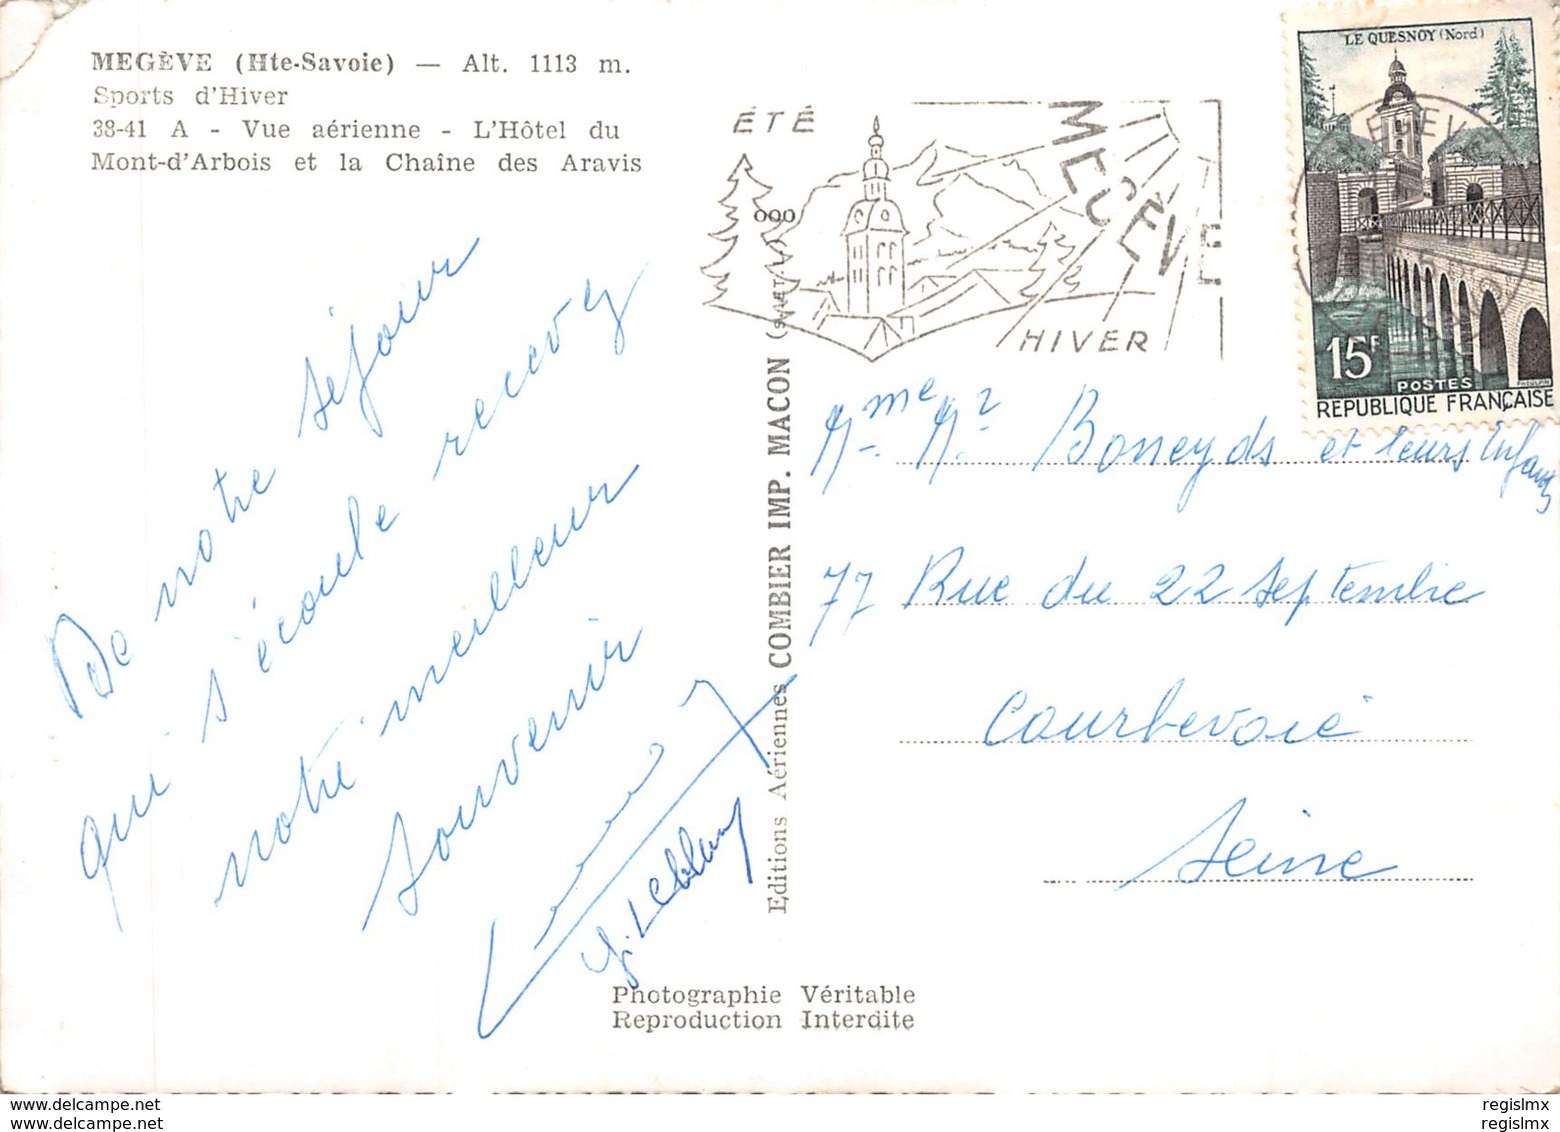 MEGÈVE (Hte-Savoie) — Alt. 1113 m.
Sports d'Hiver
38-41 A - Vue aérienne - L'Hôtel du
Mont-d'Arbois et la Chaîne des Aravis
ÉTÉ
MEGÈVE
HIVER
LE QUESNOY (Nord)
15F
POSTES
RÉPUBLIQUE FRANÇAISE
De notre séjour
qui s'écoule recevez
notre meilleur
souvenir
G. Leblanc
Editions Aériennes COMBIER IMP. MACON
Mme Mr et leurs Enfants
77 Rue du 22 septembre
Courbevoie
Seine
Photographie Véritable
Reproduction Interdite
regislmx
regislmx
www.delcampe.net
www.delcampe.net